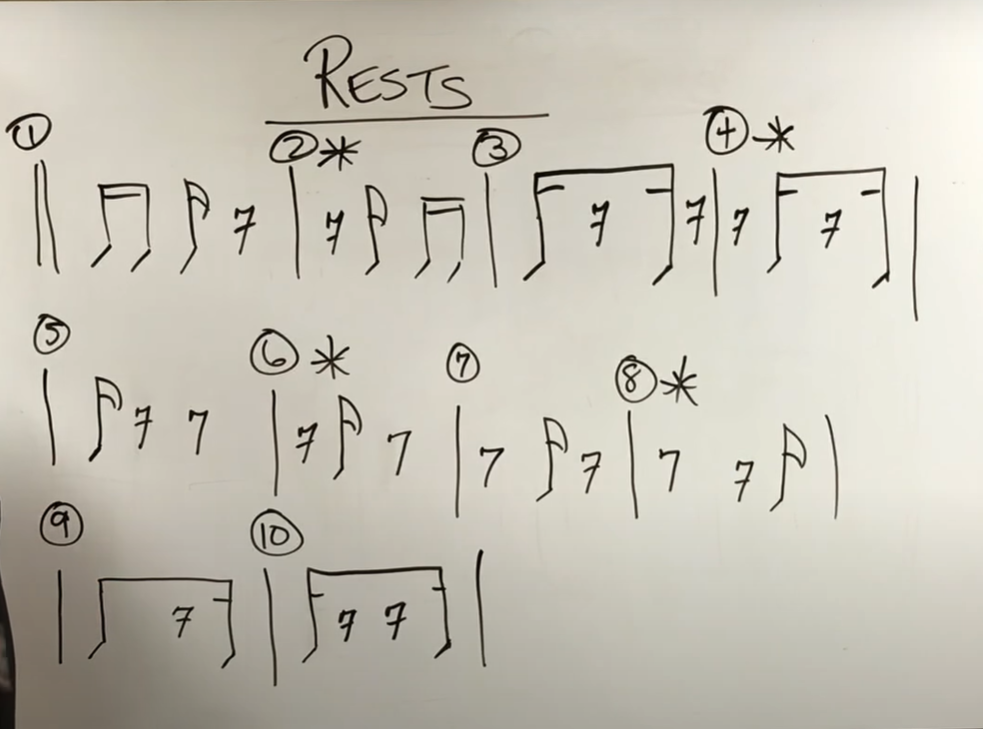 RESTS
① ②* ③ ④-*
⑤ ⑥* ⑦ ⑧*
⑨ ⑩